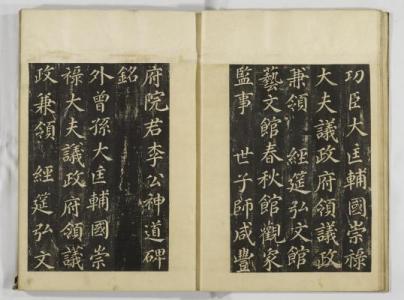 功臣大匡輔國崇祿
大夫議政府領議政
兼領 經筵弘文館
藝文館春秋館觀象
監事 世子師咸豐
府院君李公神道碑
銘
外曾孫大匡輔國崇
祿大夫議政府領議
政兼領 經筵弘文